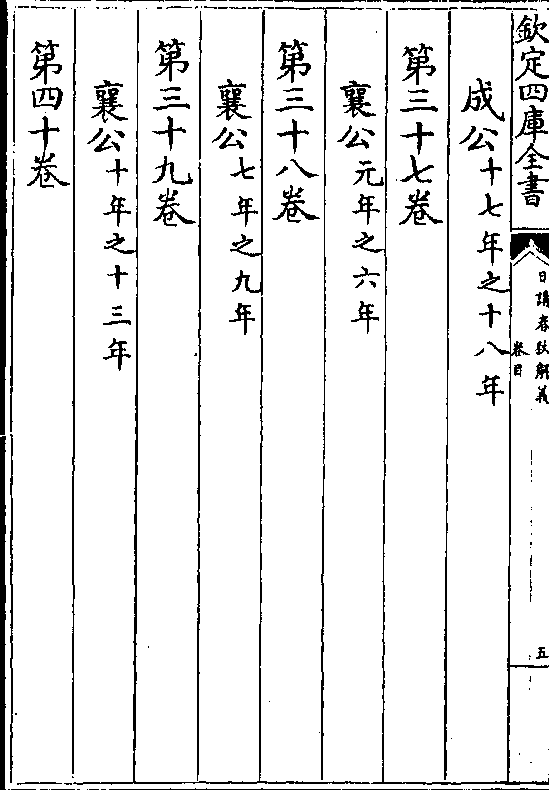 欽定四庫全書
日講春秋解義
卷目
五
成公十七年之十八年
第三十七卷
襄公元年之六年
第三十八卷
襄公七年之九年
第三十九卷
襄公十年之十三年
第四十卷